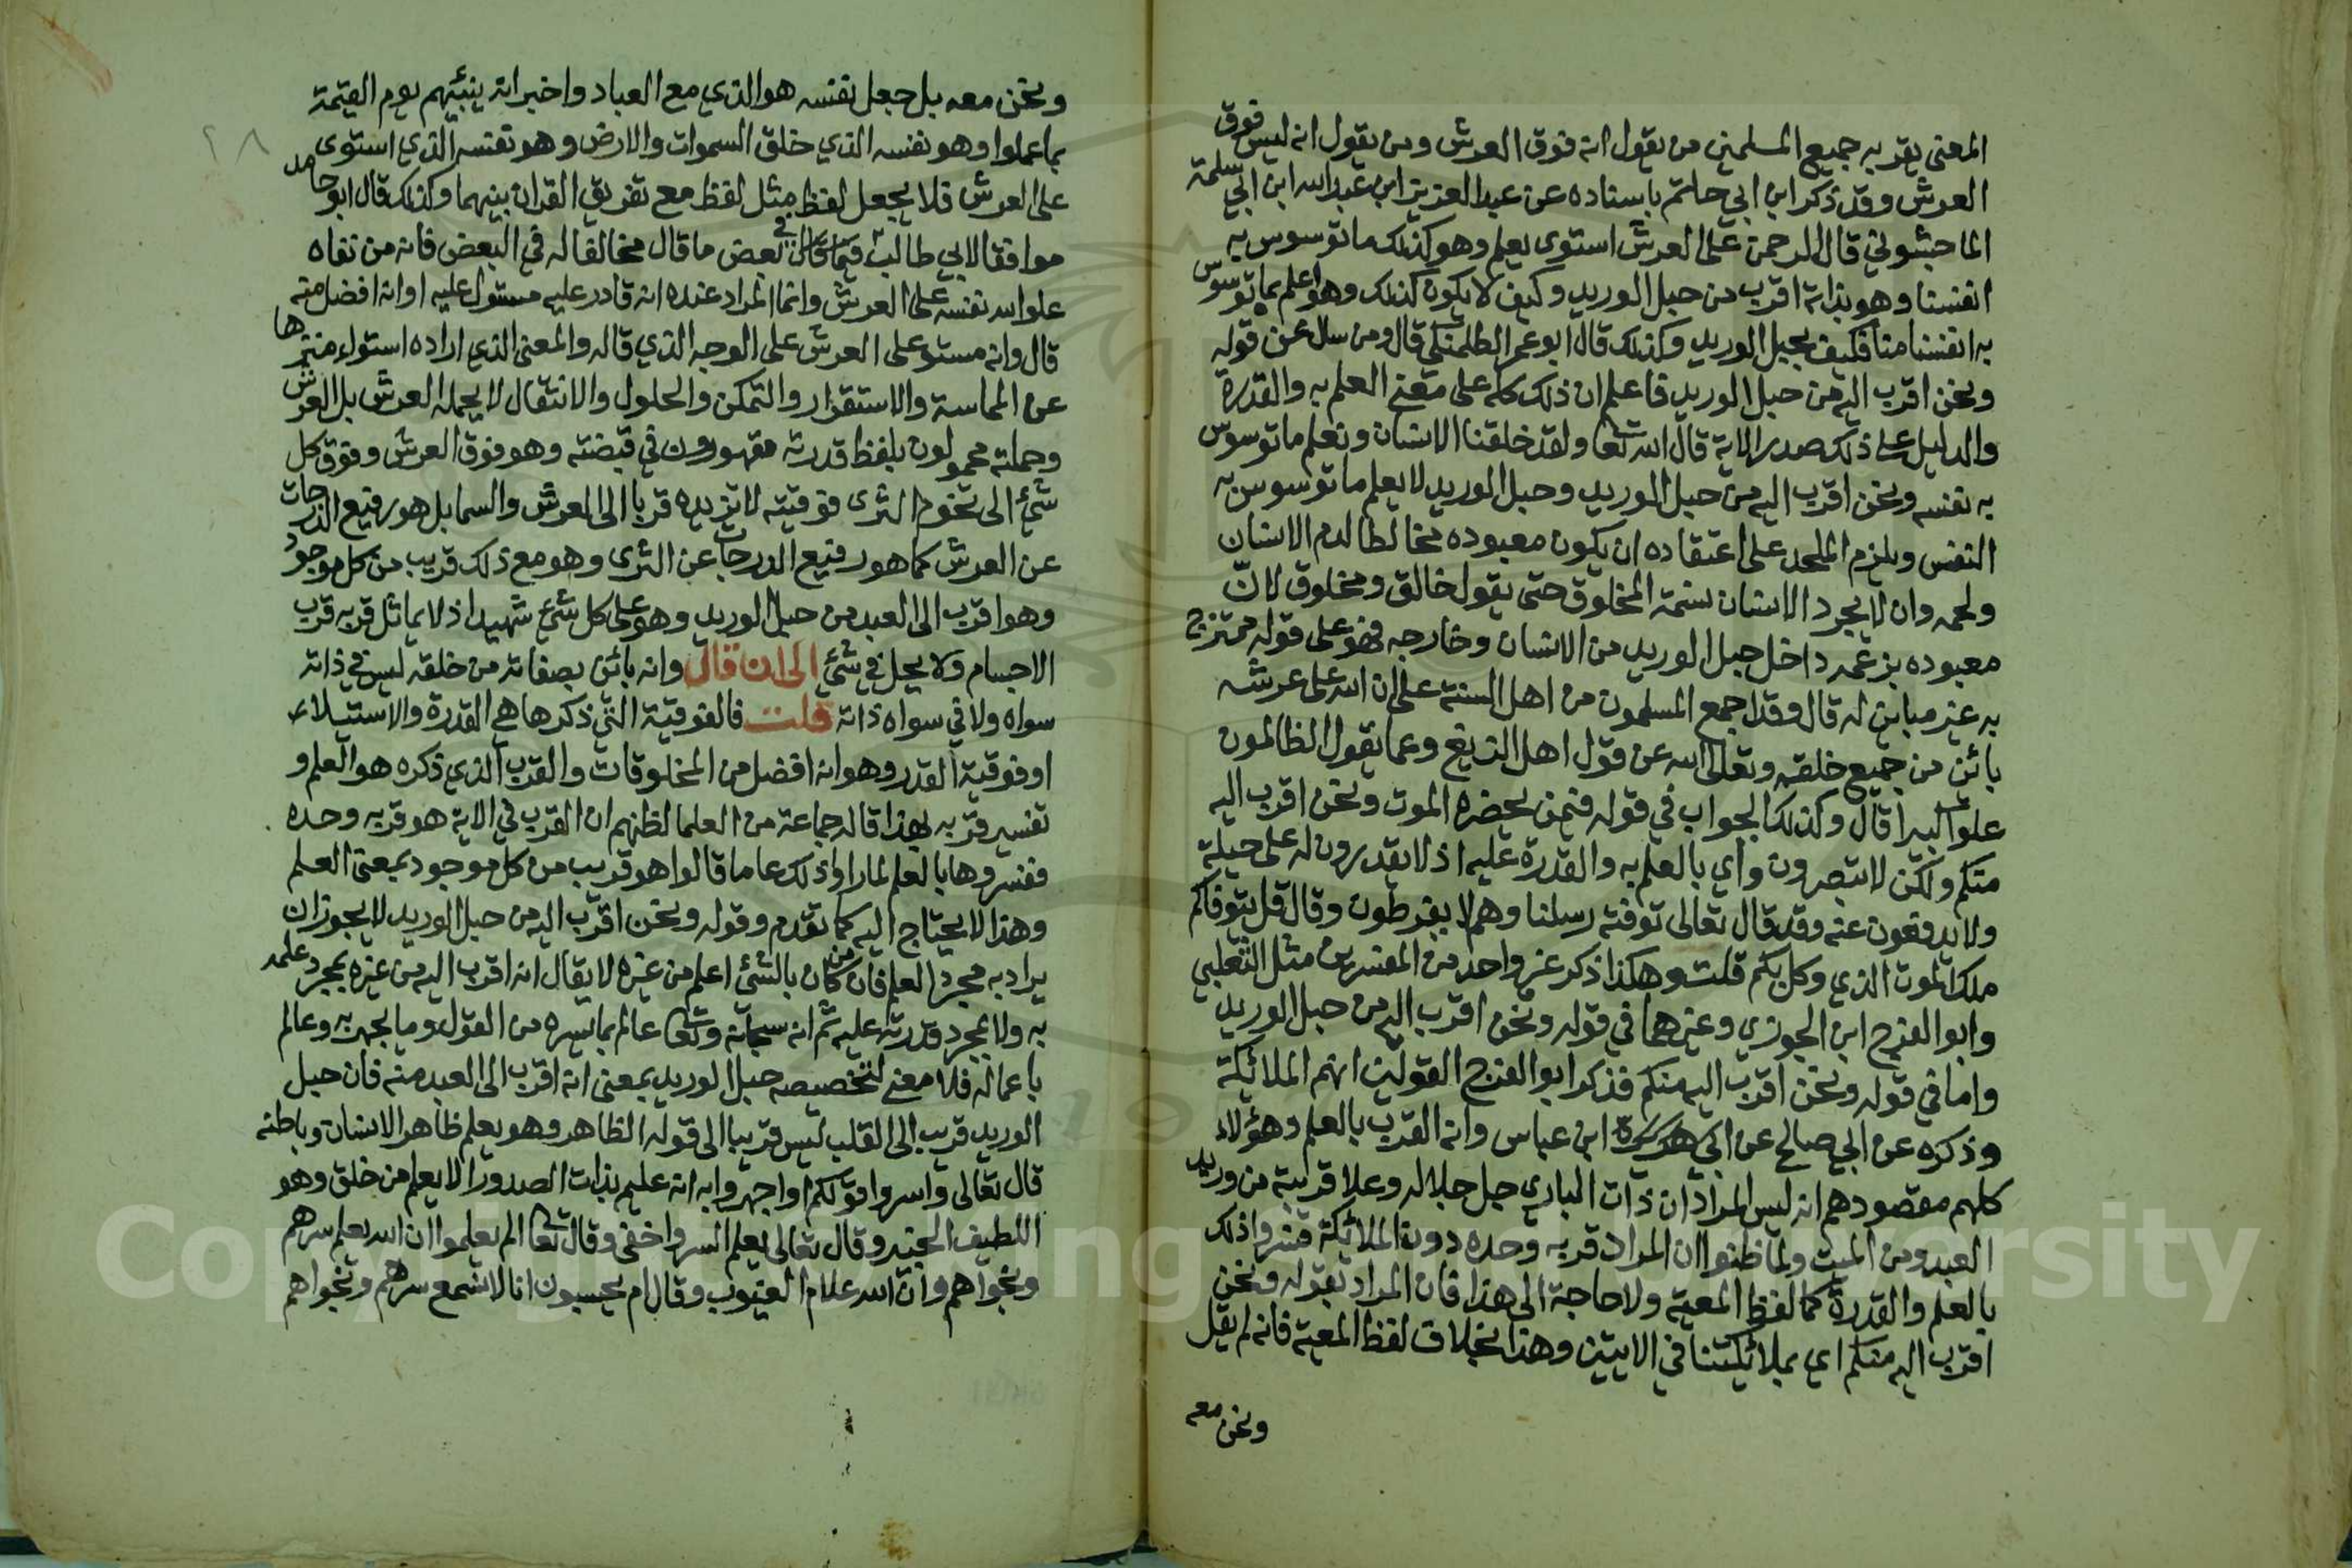 المعنى يقر به جميع المسلمين من يقول انه فوق العرش ومن يقول انه ليس فوق
العرش وقد ذكر ابن ابي حاتم باسناده عن عبد العزيز ابن عبد الله ابن ابي سلمة
الماجشوني قال الرحمن على العرش استوى يعلم وهو كذلك ما توسوس به
انفسنا وهو بذاته اقرب من حبل الوريد وكيف لا يكون كذلك وهو اعلم بما توسوس
به انفسنا منا فكيف بحبل الوريد وكذلك قال ابو عمر الطلمنكي قال ومن سال عن قوله
ونحن اقرب اليه من حبل الوريد فاعلم ان ذلك كله على معنى العلم به والقدرة
والدليل على ذلك صدر الاية قال الله تعا ولقد خلقنا الانسان ونعلم ما توسوس
به نفسه ونحن اقرب اليه من حبل الوريد وحبل الوريد لا يعلم ما توسوس به
النفس ويلزم الملحد على اعتقاده ان يكون معبوده مخالطا لدم الانسان
ولحمه وان لا يجرد الانسان بتسمة المخلوق حتى يقول خالق ومخلوق لان
معبوده بزعمه داخل حبل الوريد من الانسان وخارجه فهو على قوله ممتزج
به غير مباين له قال وقد اجمع المسلمون من اهل السنة على ان الله على عرشه
بائن من جميع خلقه وتعالى الله عن قول اهل الزيغ وعما يقول الظالمون
علوا كبيرا قال وكذلك الجواب في قوله فيمن يحضره الموت ونحن اقرب اليه
منكم ولكن لا تبصرون واي بالعلم به والقدرة عليه اذ لا يقدرون له على حيلة
ولا يدفعون عنه وقد قال تعالى توفته رسلنا وهم لا يفرطون وقال قل يتوفاكم
ملك الموت الذي وكل بكم قلت وهكذا ذكر غير واحد من المفسرين مثل الثعلبي
وابو الفرج ابن الجوزي وغيرهما في قوله ونحن اقرب اليه من حبل الوريد
واما في قوله ونحن اقرب اليه منكم فذكر ابو الفرج القولين انهم الملائكة
وذكره عن ابي صالح عن ابن عباس وانه القرب بالعلم وهؤلاء
كلهم مقصودهم انه ليس المراد ان ذات الباري جل جلاله وعلا قريبة من وريد
العبد ومن الميت ولما ظنوا ان المراد قربه وحده دون الملائكة فسروا ذلك
بالعلم والقدرة كما لفظ المعية ولا حاجة الى هذا فان المراد بقوله ونحن
اقرب اليه منكم اي بملائكتنا في الايتين وهذا بخلاف لفظ المعية فانه لم يقل
ونحن معه
ونحن معه بل جعل نفسه هو الذي مع العباد واخبر انه ينبئهم يوم القيمة
بما عملوا وهو نفسه الذي خلق السموات والارض وهو نفسه الذي استوى
على العرش فلا يجعل لفظ مثل لفظ مع تفريق القران بينهما وكذلك قال ابو حامد
موافقا لابي طالب في بعض ما قال مخالفا له في البعض فانه من نفاه
علو الله نفسه على العرش وانما المراد عنده انه قادر عليه مستول عليه او انه افضل منه
قال وانه مستو على العرش على الوجه الذي قاله والمعنى الذي اراده استواء منزها
عن المماسة والاستقرار والتمكن والحلول والانتقال لا يحمله العرش بل العرش
وحملته محمولون بلفظ قدرته مقهورون في قبضته وهو فوق العرش وفوق كل
شيء الى تخوم الثرى فوقيته لا تزيده قربا الى العرش والسما بل هو رفيع الدرجات
عن العرش كما هو رفيع الدرجات عن الثرى وهو مع ذلك قريب من كل موجود
وهو اقرب الى العبد من حبل الوريد وهو على كل شيء شهيد اذ لا يماثل قربه قرب
الاجسام ولا يحل في شيء الى ان قال وانه بائن بصفاته من خلقه ليس في ذاته
سواه ولا في سواه ذاته قلت فالفوقية التي ذكرها هي القدرة والاستيلاء
او فوقية القدر وهو انه افضل من المخلوقات والقرب الذي ذكره هو العلم و
تفسير قربه بهذا قاله جماعة من العلما لظنهم ان القرب في الاية هو قربه وحده
ففسروها بالعلم لما راوا ذلك عاما قالوا هو قريب من كل موجود بمعنى العلم
وهذا لا يحتاج اليه كما تقدم وقوله ونحن اقرب اليه من حبل الوريد لا يجوز ان
يراد به مجرد العلم فان من كان بالشئ اعلم من غيره لا يقال انه اقرب اليه من غيره بمجرد علمه
به ولا بمجرد قدرته عليه ثم انه سبحانه وتعا عالم بما يسره من القول وما يجهر به وعالم
باعماله فلا معنى لتخصيصه حبل الوريد بمعنى انه اقرب الى العبد منه فان حبل
الوريد قريب الى القلب ليس قريبا الى قوله الظاهر وهو يعلم ظاهر الانسان وباطنه
قال تعالى واسروا قولكم او اجهروا به انه عليم بذات الصدور الا يعلم من خلق وهو
اللطيف الخبير وقال تعالى يعلم السر واخفى وقال تعا الم يعلموا ان الله يعلم سرهم
ونجواهم وان الله علام الغيوب وقال ام يحسبون انا لا نسمع سرهم ونجواهم
Copyright © King Saud University